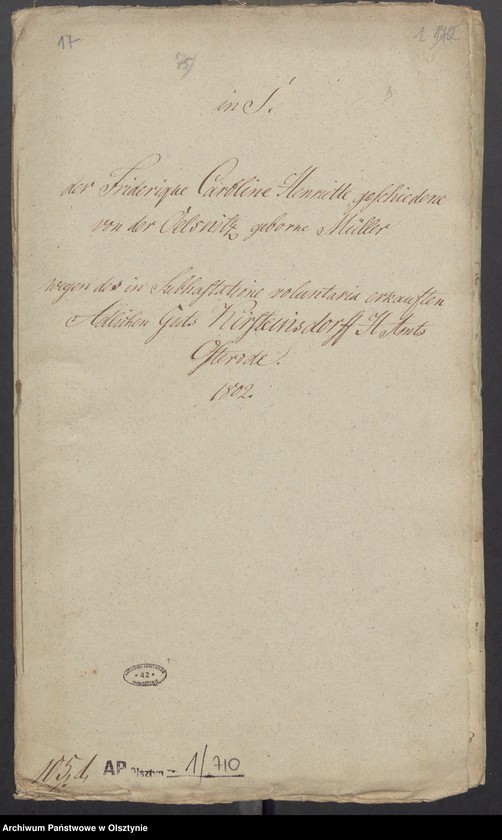 17
1
in S.
der Friderique Caroline Henriette geschiedene
von der Oelsnitz geborne Müller
wegen des in Subhastatione voluntaria erkauften
Adlichen Guts Kirsteinsdorff H. Amts
Osterode.
1802.
42
105, d,
AP Olsztyn 1/710
Archiwum Państwowe w Olsztynie